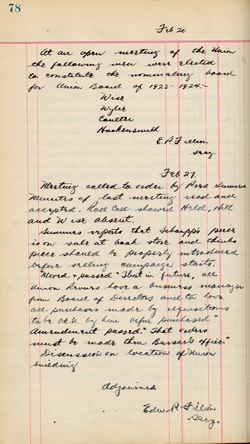 78
Feb 20
At an open meeting of the Union
the following men were elected
to constitute the nominating board
for Union Board of 1923-1924:-
Wise
Wylie
Coulter
Hockensmith
Secy.
Feb 27.
Meeting called to order by Pres. Summers
Minutes of last meeting read and
accepted. Roll Call showed Held, Hill
and Wise absent.
Summers reports that Schapp's piece
is on sale at book store and thinks
piece should be properly introduced
before selling campaign starts.
Moved & passed "That in future, all
Union shows have a business manager
from Board of Directors and to have
all purchases made by requisitions
to be O.K. by him before purchased"
Amendment passed: "That orders
must be made thru Bursar's office"
Discussion on location of Union
building
Adjourned
Edw. R.
Secy.